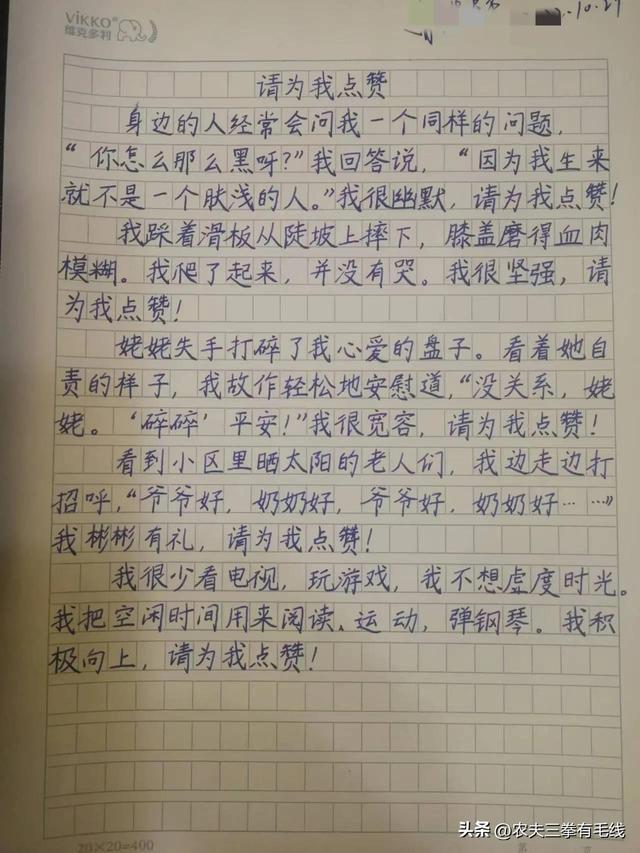 ViKKO®
维克多利
10.29
请为我点赞
身边的人经常会问我一个同样的问题，
“你怎么那么黑呀？”我回答说，“因为我生来
就不是一个肤浅的人。”我很幽默，请为我点赞！
我踩着滑板从陡坡上摔下，膝盖磨得血肉
模糊。我爬了起来，并没有哭。我很坚强，请
为我点赞！
姥姥失手打碎了我心爱的盘子。看着她自
责的样子，我故作轻松地安慰道，“没关系，姥
姥。‘碎碎’平安！”我很宽容，请为我点赞！
看到小区里晒太阳的老人们，我边走边打
招呼，“爷爷好，奶奶好，爷爷好，奶奶好……”
我彬彬有礼，请为我点赞！
我很少看电视，玩游戏，我不想虚度时光。
我把空闲时间用来阅读、运动，弹钢琴。我积
极向上，请为我点赞！
20×20=400
第 页
头条 @农夫三拳有毛线